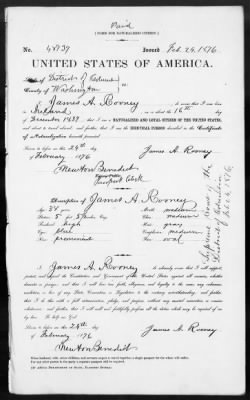 Paid
[FORM FOR NATURALIZED CITIZEN.]
No. 48737 Issued Feb. 24, 1876.
UNITED STATES OF AMERICA.
District of Columbia
County of Washington
I, James A. Rooney, do swear that I was born
in Ireland, on or about the 16th day
of December 1837; that I am a NATURALIZED AND LOYAL CITIZEN OF THE UNITED STATES,
and about to travel abroad; and further, that I am the IDENTICAL PERSON described in the Certificate
of Naturalization herewith presented.
Sworn to before me this 24th day
of February 1876
James A. Rooney
Newton Benedict
Passport Clerk
Description of James A. Rooney
Age: 38 years Mouth: medium
Stature: 5 feet 5 inches Eng. Chin: medium
Forehead: high Hair: gray
Eyes: blue Complexion: medium
Nose: prominent Face: oval
Supreme Court of the
District of Columbia
I, James A. Rooney, do solemnly swear that I will support,
protect, and defend the Constitution and Government of the United States against all enemies, whether
domestic or foreign; and that I will bear true faith, allegiance, and loyalty to the same, any ordinance,
resolution, or law of any State, Convention, or Legislature to the contrary notwithstanding; and further,
that I do this with a full determination, pledge, and purpose, without any mental reservation or evasion
whatsoever; and further, that I will well and faithfully perform all the duties which may be required of me
by law. So help me God!
Sworn to before me this 24th day
of February 1876
James A. Rooney
Newton Benedict